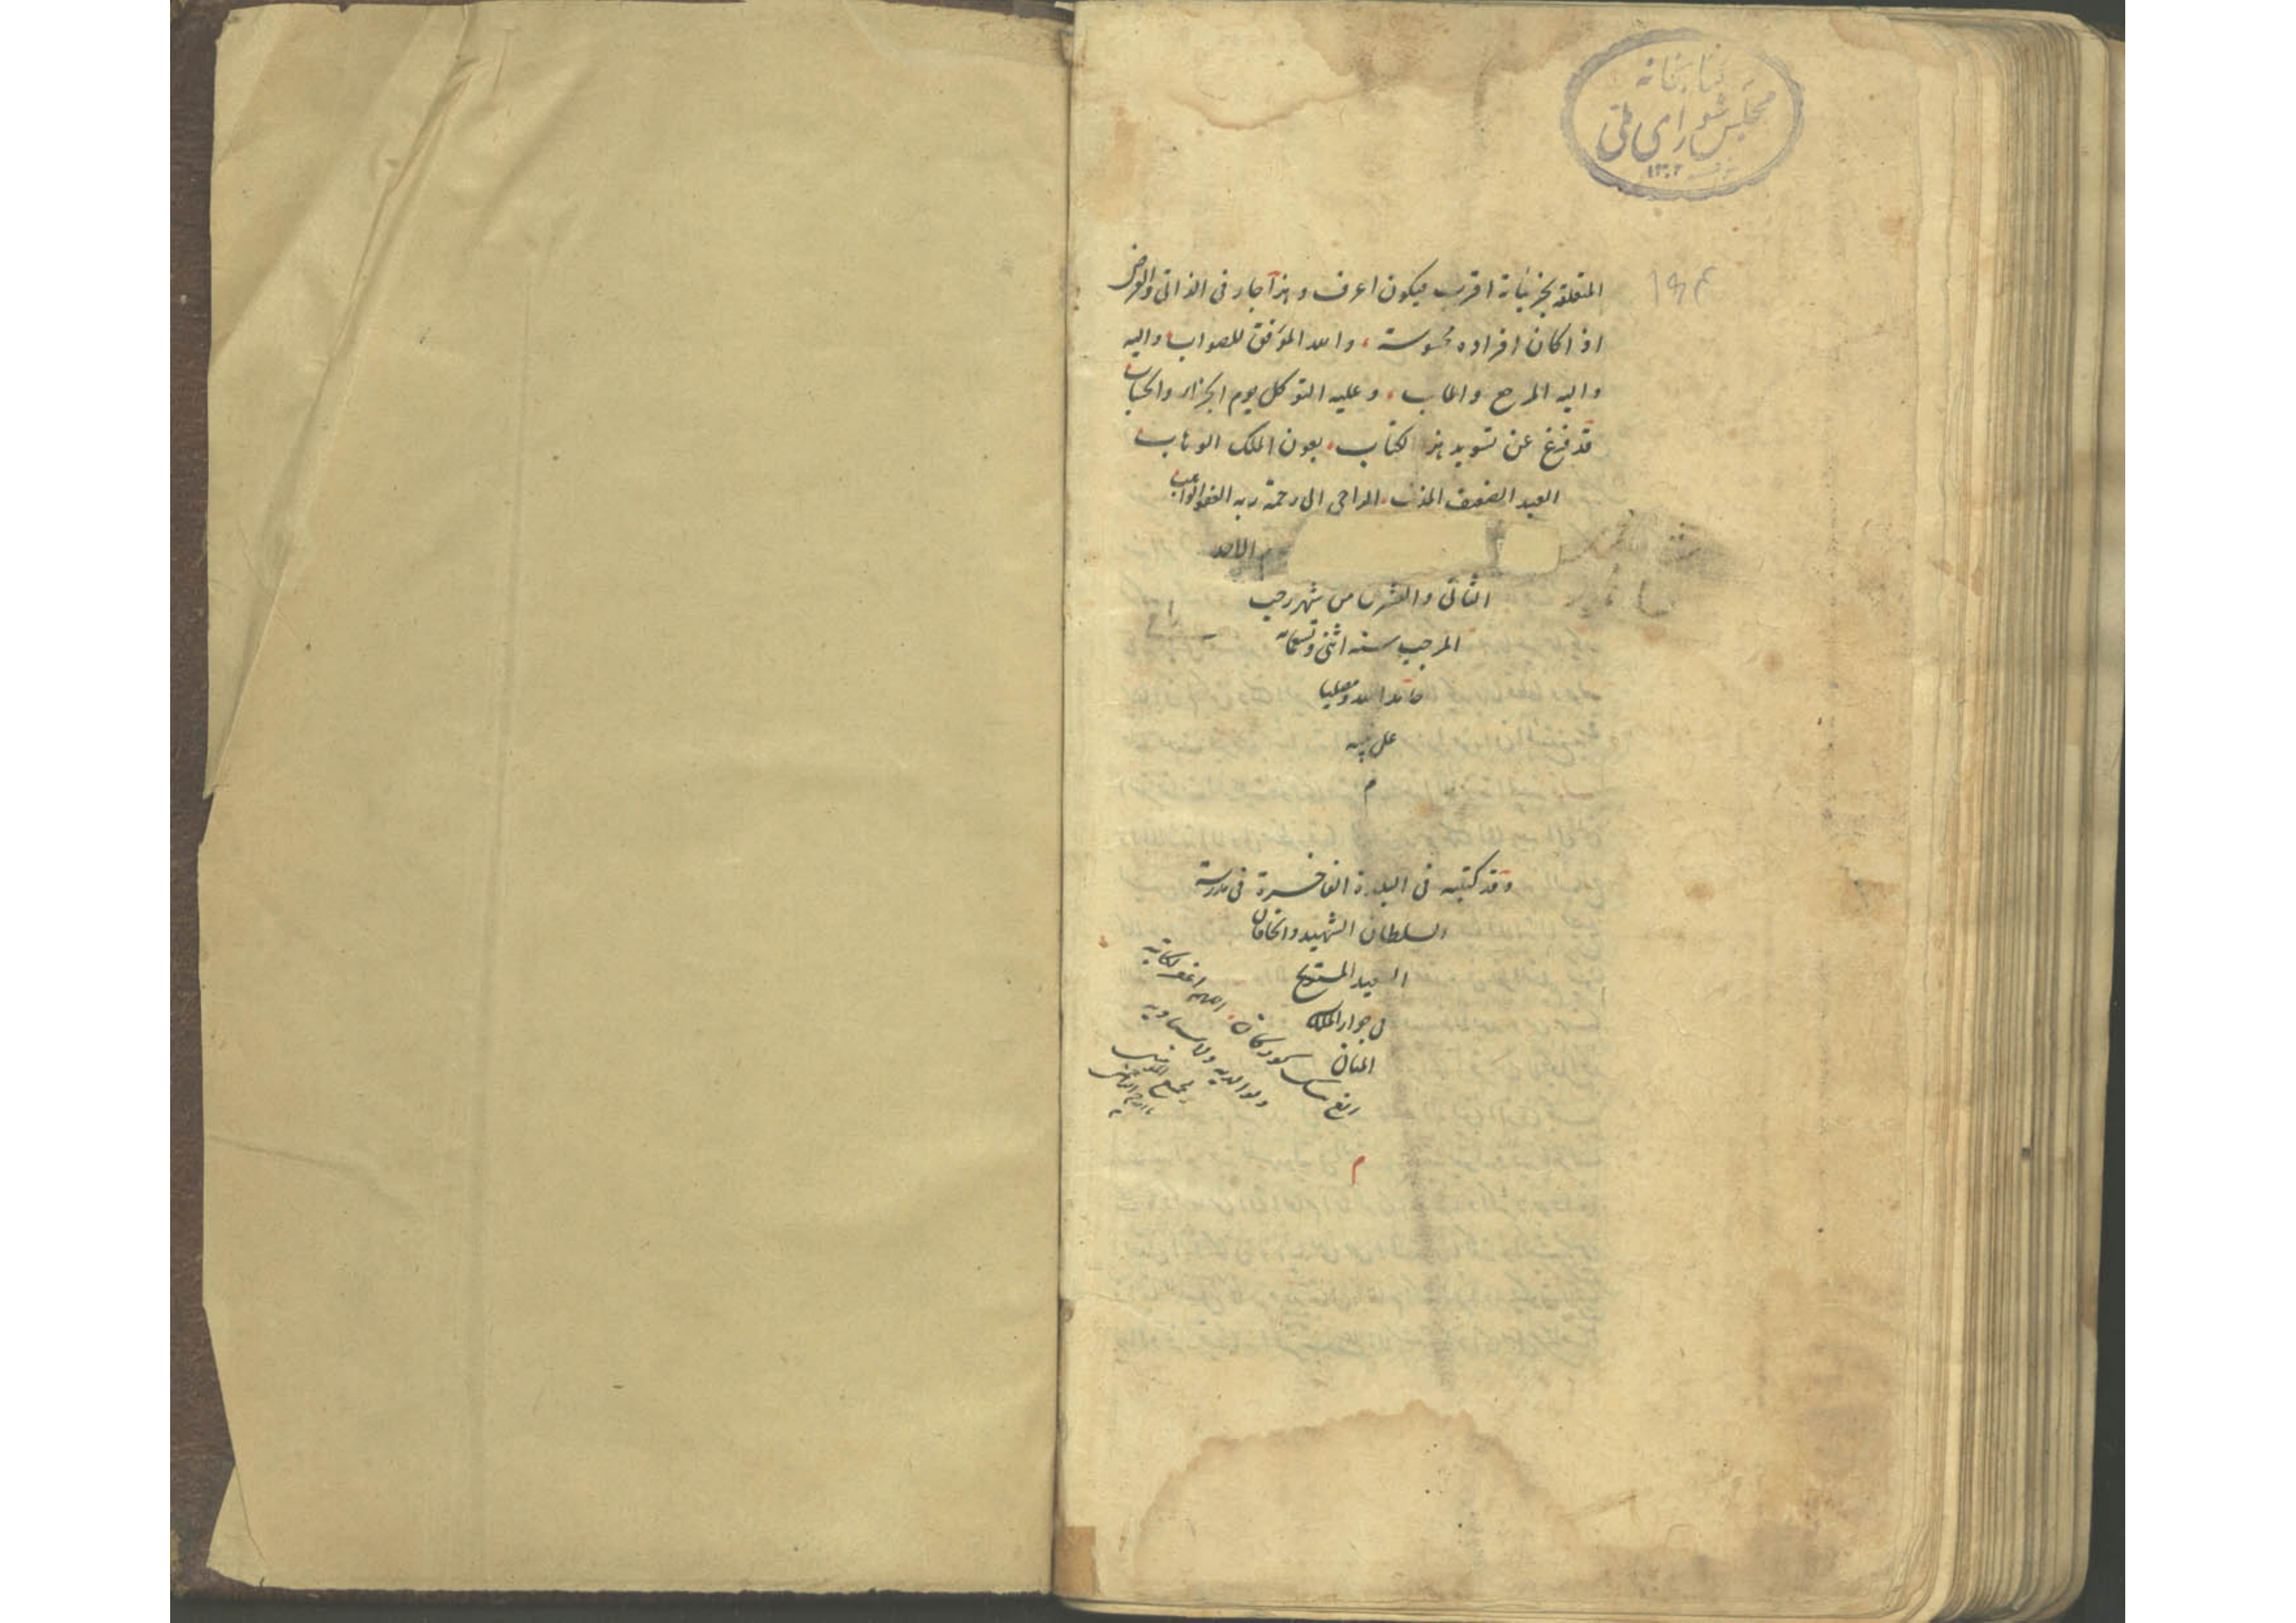 كتابخانه
مجلس شورای ملی
١٣٠٢
المتعلقة بجزئياته اقرب فيكون اعرف وهذا جار فى الذاتى والعرض
اذا كان افراده محسوسة، والله الموفق للصواب واليه
واليه المرجع والماب، وعليه التوكل يوم الجزاء والحساب
قد فرغ عن تسويد هذا الكتاب، بعون الملك الوهاب
العبد الضعيف المذنب الراجى الى رحمة ربه الغفو
الاحد
الثانى والعشرين من شهر رجب
المرجب سنه اثنى وتسعمائه
حامدا لله ومصليا
على نبيه
م
وقد كتبته فى البلدة الفاخرة فى مدرسة
السلطان الشهيد والخاقان
السعيد المستريح
فى جوار الملك
المنان
كوركان. اللهم اغفر لكاتبه
ولوالديه ولاستاديه
م